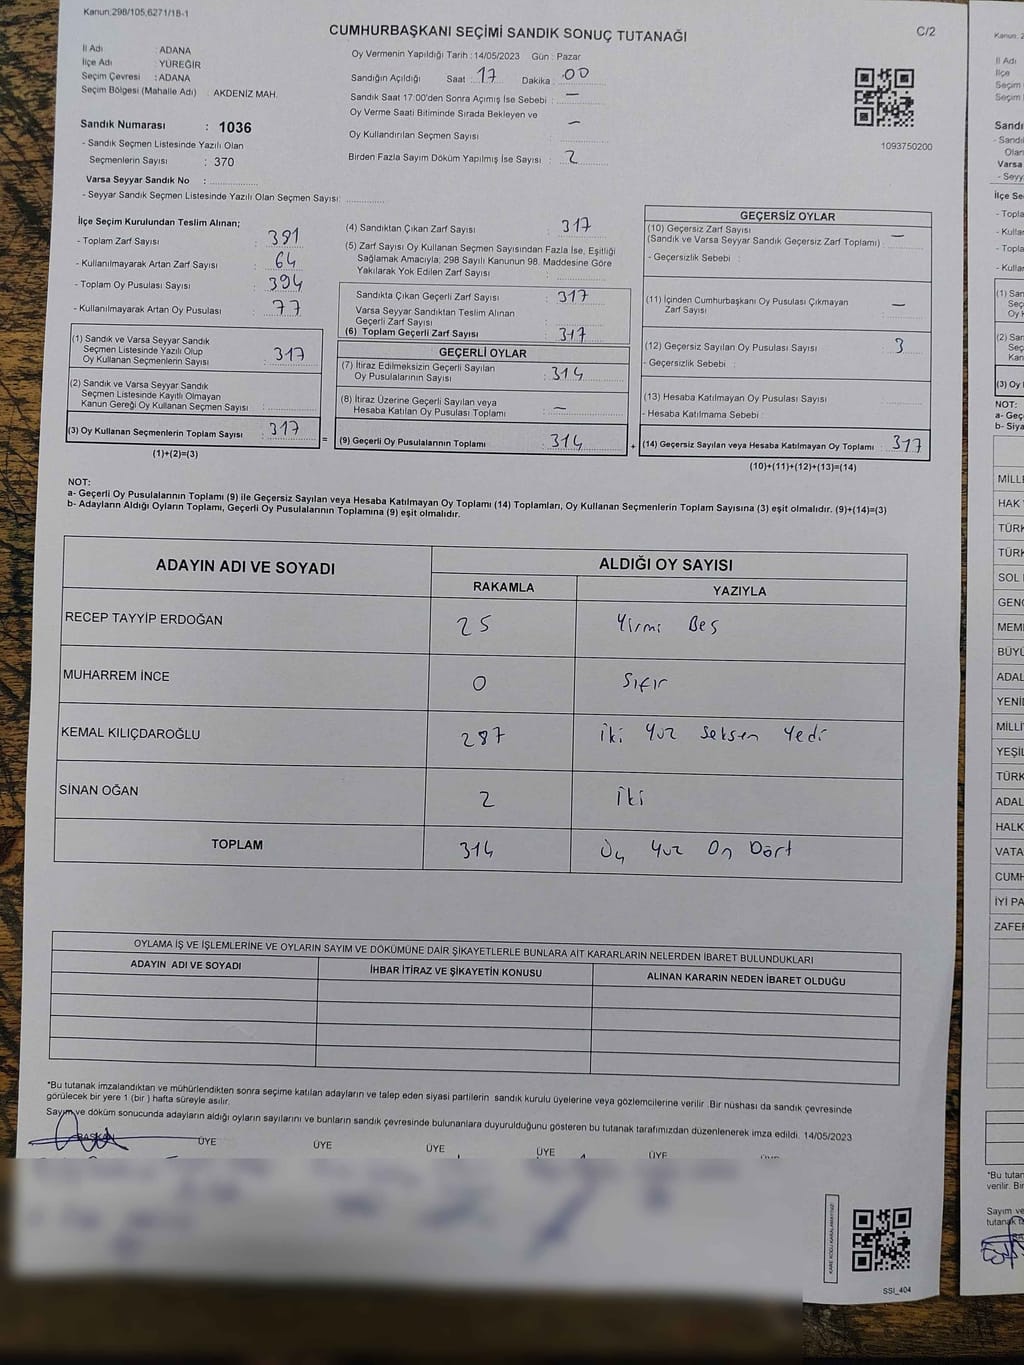 Kanun:298/105,6271/18-1
CUMHURBAŞKANI SEÇİMİ SANDIK SONUÇ TUTANAĞI
C/2
İl Adı : ADANA
İlçe Adı : YÜREĞİR
Seçim Çevresi : ADANA
Seçim Bölgesi (Mahalle Adı) : AKDENİZ MAH.
Sandık Numarası : 1036
- Sandık Seçmen Listesinde Yazılı Olan
Seçmenlerin Sayısı : 370
Varsa Seyyar Sandık No :
- Seyyar Sandık Seçmen Listesinde Yazılı Olan Seçmen Sayısı:
Oy Vermenin Yapıldığı Tarih : 14/05/2023 Gün : Pazar
Sandığın Açıldığı Saat : 17 Dakika : 00
Sandık Saat 17:00'den Sonra Açımış İse Sebebi : —
Oy Verme Saati Bitiminde Sırada Bekleyen ve
Oy Kullandırılan Seçmen Sayısı : —
Birden Fazla Sayım Döküm Yapılmış İse Sayısı : 2
1093750200
İlçe Seçim Kurulundan Teslim Alınan;
- Toplam Zarf Sayısı : 381
- Kullanılmayarak Artan Zarf Sayısı : 64
- Toplam Oy Pusulası Sayısı : 394
- Kullanılmayarak Artan Oy Pusulası : 77
(1) Sandık ve Varsa Seyyar Sandık
Seçmen Listesinde Yazılı Olup
Oy Kullanan Seçmenlerin Sayısı : 317
(2) Sandık ve Varsa Seyyar Sandık
Seçmen Listesinde Kayıtlı Olmayan
Kanun Gereği Oy Kullanan Seçmen Sayısı :
(3) Oy Kullanan Seçmenlerin Toplam Sayısı : 317 =
(1)+(2)=(3)
(4) Sandıktan Çıkan Zarf Sayısı : 317
(5) Zarf Sayısı Oy Kullanan Seçmen Sayısından Fazla İse, Eşitliği
Sağlamak Amacıyla; 298 Sayılı Kanunun 98. Maddesine Göre
Yakılarak Yok Edilen Zarf Sayısı :
Sandıkta Çıkan Geçerli Zarf Sayısı : 317
Varsa Seyyar Sandıktan Teslim Alınan
Geçerli Zarf Sayısı :
(6) Toplam Geçerli Zarf Sayısı : 317
GEÇERLİ OYLAR
(7) İtiraz Edilmeksizin Geçerli Sayılan
Oy Pusulalarının Sayısı : 314
(8) İtiraz Üzerine Geçerli Sayılan veya
Hesaba Katılan Oy Pusulası Toplamı : —
(9) Geçerli Oy Pusulalarının Toplamı : 314 +
GEÇERSİZ OYLAR
(10) Geçersiz Zarf Sayısı : —
(Sandık ve Varsa Seyyar Sandık Geçersiz Zarf Toplamı)
- Geçersizlik Sebebi :
(11) İçinden Cumhurbaşkanı Oy Pusulası Çıkmayan
Zarf Sayısı : —
(12) Geçersiz Sayılan Oy Pusulası Sayısı : 3
- Geçersizlik Sebebi :
(13) Hesaba Katılmayan Oy Pusulası Sayısı :
- Hesaba Katılmama Sebebi :
(14) Geçersiz Sayılan veya Hesaba Katılmayan Oy Toplamı : 317
(10)+(11)+(12)+(13)=(14)
NOT:
a- Geçerli Oy Pusulalarının Toplamı (9) ile Geçersiz Sayılan veya Hesaba Katılmayan Oy Toplamı (14) Toplamları, Oy Kullanan Seçmenlerin Toplam Sayısına (3) eşit olmalıdır. (9)+(14)=(3)
b- Adayların Aldığı Oyların Toplamı, Geçerli Oy Pusulalarının Toplamına (9) eşit olmalıdır.
ADAYIN ADI VE SOYADI ALDIĞI OY SAYISI
RAKAMLA YAZIYLA
RECEP TAYYİP ERDOĞAN 25 Yirmi Beş
MUHARREM İNCE 0 Sıfır
KEMAL KILIÇDAROĞLU 287 İki Yüz Seksen Yedi
SİNAN OĞAN 2 İki
TOPLAM 314 Üç Yüz On Dört
OYLAMA İŞ VE İŞLEMLERİNE VE OYLARIN SAYIM VE DÖKÜMÜNE DAİR ŞİKAYETLERLE BUNLARA AİT KARARLARIN NELERDEN İBARET BULUNDUKLARI
ADAYIN ADI VE SOYADI İHBAR İTİRAZ VE ŞİKAYETİN KONUSU ALINAN KARARIN NEDEN İBARET OLDUĞU
*Bu tutanak imzalandıktan ve mühürlendikten sonra seçime katılan adayların ve talep eden siyasi partilerin sandık kurulu üyelerine veya gözlemcilerine verilir .Bir nüshası da sandık çevresinde
görülecek bir yere 1 (bir ) hafta süreyle asılır.
Sayım ve döküm sonucunda adayların aldığı oyların sayılarını ve bunların sandık çevresinde bulunanlara duyurulduğunu gösteren bu tutanak tarafımızdan düzenlenerek imza edildi. 14/05/2023
BAŞKAN ÜYE ÜYE ÜYE ÜYE ÜYE
SSI_404